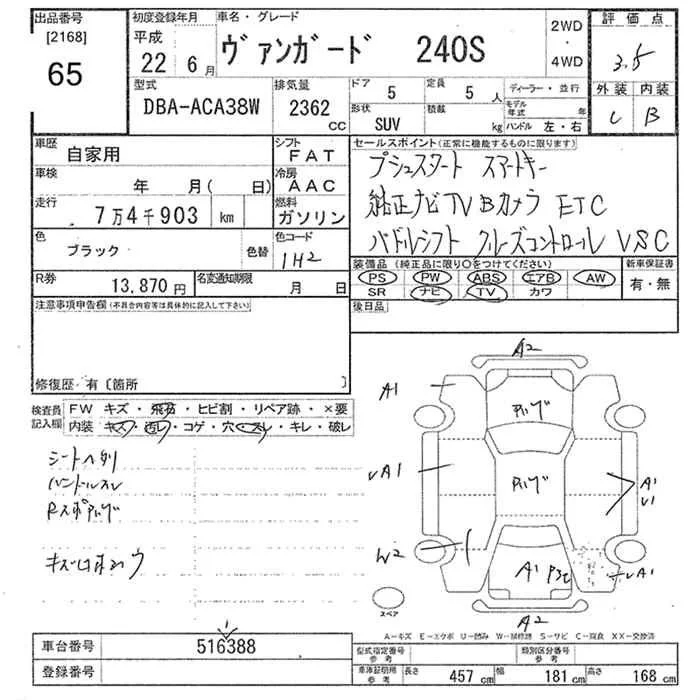 出品番号
[2168]
65
初度登録年月
平成
22 6月
車名・グレード
ヴァンガード 240S
2WD
・
4WD
評価点
3.5
外装 内装
C B
型式
DBA-ACA38W
排気量
2362
CC
ドア
5
定員
5 人
形状
SUV
積載
kg
ディーラー・並行
モデル年式 年
ハンドル 左・右
車歴
自家用
シフト
FAT
車検
年 月( 日)
冷房
AAC
走行
7万4千903 km
燃料
ガソリン
色
ブラック
色替
色コード
1H2
R券
13,870円
名変通知期限
月 日
セールスポイント(正常に機能するものに限ります)
プシュスタート スマートキー
純正ナビTV Bカメラ ETC
パドルシフト クルーズコントロール VSC
装備品(純正品に限り○をつけてください)
新車保証書
PS PW ABS エアB AW
SR ナビ TV カワ
有・無
後日品
注意事項申告欄(不具合内容等は具体的に記入して下さい)
修復歴・有〔箇所 〕
検査員記入欄
FW キズ・飛石・ヒビ割・リペア跡・×要
内装 キズ・汚レ・コゲ・穴・スレ・キレ・破レ
シートヘタリ
ハンドルスレ
A2
A1
A1
A1
V1
W2
A1
A2
スペア
A-キズ E-エクボ U-凹み W-補修跡 S-サビ C-腐食 XX-交換済
車台番号
516388
登録番号
型式指定番号
参考
類別区分番号
参考
車庫証明用
参考
長さ 457 cm 幅 181 cm 高さ 168 cm